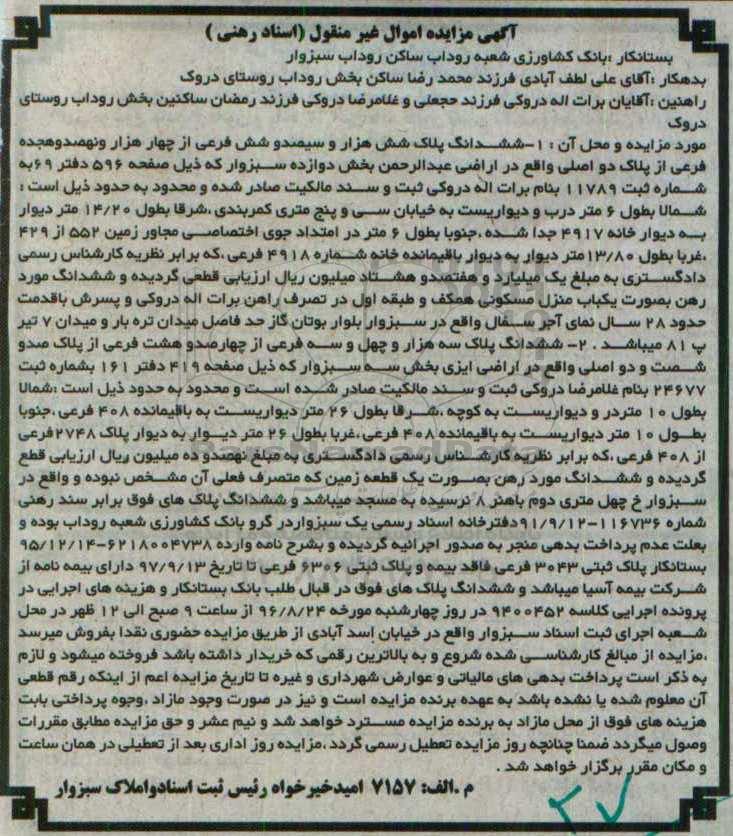 آگهی مزایده اموال غیر منقول (اسناد رهنی )
بستانکار :بانک کشاورزی شعبه روداب ساکن روداب سبزوار
بدهکار :آقای علی لطف آبادی فرزند محمد رضا ساکن بخش روداب روستای دروک
راهنین :آقایان برات اله دروکی فرزند حجعلی و غلامرضا دروکی فرزند رمضان ساکنین بخش روداب روستای
دروک
مورد مزایده و محل آن : ۱-ششدانگ پلاک شش هزار و سیصدو شش فرعی از چهار هزار ونهصدوهجده
فرعی از پلاک دو اصلی واقع در اراضی عبدالرحمن بخش دوازده سبزوار که ذیل صفحه ۵۹۶ دفتر ۶۹ به
شماره ثبت ۱۱۷۸۹ بنام برات اله دروکی ثبت و سند مالکیت صادر شده و محدود به حدود ذیل است :
شمالا بطول ۶ متر درب و دیواریست به خیابان سی و پنج متری کمربندی ،شرقا بطول ۱۴/۲۰ متر دیوار
به دیوار خانه ۴۹۱۷ جدا شده ،جنوبا بطول ۶ متر در امتداد جوی اختصاصی مجاور زمین ۵۵۲ از ۴۲۹
،غربا بطول ۱۳/۸۰ متر دیوار به دیوار باقیمانده خانه شماره ۴۹۱۸ فرعی ،که برابر نظریه کارشناس رسمی
دادگستری به مبلغ یک میلیارد و هفتصدو هشتاد میلیون ریال ارزیابی قطعی گردیده و ششدانگ مورد
رهن بصورت یکباب منزل مسکونی همکف و طبقه اول در تصرف راهن برات اله دروکی و پسرش باقدمت
حدود ۲۸ سال نمای آجر سفال واقع در سبزوار بلوار بوتان گاز حد فاصل میدان تره بار و میدان ۷ تیر
پ ۸۱ میباشد . ۲- ششدانگ پلاک سه هزار و چهل و سه فرعی از چهارصدو هشت فرعی از پلاک صدو
شصت و دو اصلی واقع در اراضی ایزی بخش سه سبزوار که ذیل صفحه ۴۱۹ دفتر ۱۶۱ بشماره ثبت
۲۴۶۷۷ بنام غلامرضا دروکی ثبت و سند مالکیت صادر شده است و محدود به حدود ذیل است :شمالا
بطول ۱۰ متردر و دیواریست به کوچه ،شرقا بطول ۲۶ متر دیواریست به باقیمانده ۴۰۸ فرعی ،جنوبا
بطول ۱۰ متر دیواریست به باقیمانده ۴۰۸ فرعی ،غربا بطول ۲۶ متر دیوار به دیوار پلاک ۲۷۴۸فرعی
از ۴۰۸ فرعی ،که برابر نظریه کارشناس رسمی دادگستری به مبلغ نهصدو ده میلیون ریال ارزیابی قطع
گردیده و ششدانگ مورد رهن بصورت یک قطعه زمین که متصرف فعلی آن مشخص نبوده و واقع در
سبزوار خ چهل متری دوم باهنر ۸ نرسیده به مسجد میباشد و ششدانگ پلاک های فوق برابر سند رهنی
شماره ۱۱۶۷۳۶-۹۱/۹/۱۲دفترخانه اسناد رسمی یک سبزواردر گرو بانک کشاورزی شعبه روداب بوده و
بعلت عدم پرداخت بدهی منجر به صدور اجرائیه گردیده و بشرح نامه وارده ۶۲۱۸۰۰۴۷۳۸-۹۵/۱۲/۱۴
بستانکار پلاک ثبتی ۳۰۴۳ فرعی فاقد بیمه و پلاک ثبتی ۶۳۰۶ فرعی تا تاریخ ۹۷/۹/۱۳ دارای بیمه نامه از
شرکت بیمه آسیا میباشد و ششدانگ پلاک های فوق در قبال طلب بانک بستانکار و هزینه های اجرایی در
پرونده اجرایی کلاسه ۹۴۰۰۴۵۲ در روز چهارشنبه مورخه ۹۶/۸/۲۴ از ساعت ۹ صبح الی ۱۲ ظهر در محل
شعبه اجرای ثبت اسناد سبزوار واقع در خیابان اسد آبادی از طریق مزایده حضوری نقدا بفروش میرسد
،مزایده از مبالغ کارشناسی شده شروع و به بالاترین رقمی که خریدار داشته باشد فروخته میشود و لازم
به ذکر است پرداخت بدهی های مالیاتی و عوارض شهرداری و غیره تا تاریخ مزایده اعم از اینکه رقم قطعی
آن معلوم شده یا نشده باشد به عهده برنده مزایده است و نیز در صورت وجود مازاد ،وجوه پرداختی بابت
هزینه های فوق از محل مازاد به برنده مزایده مسترد خواهد شد و نیم عشر و حق مزایده مطابق مقررات
وصول میگردد ضمنا چنانچه روز مزایده تعطیل رسمی گردد ،مزایده روز اداری بعد از تعطیلی در همان ساعت
و مکان مقرر برگزار خواهد شد .
م .الف: ۷۱۵۷ امیدخیرخواه رئیس ثبت اسنادواملاک سبزوار
۲۷